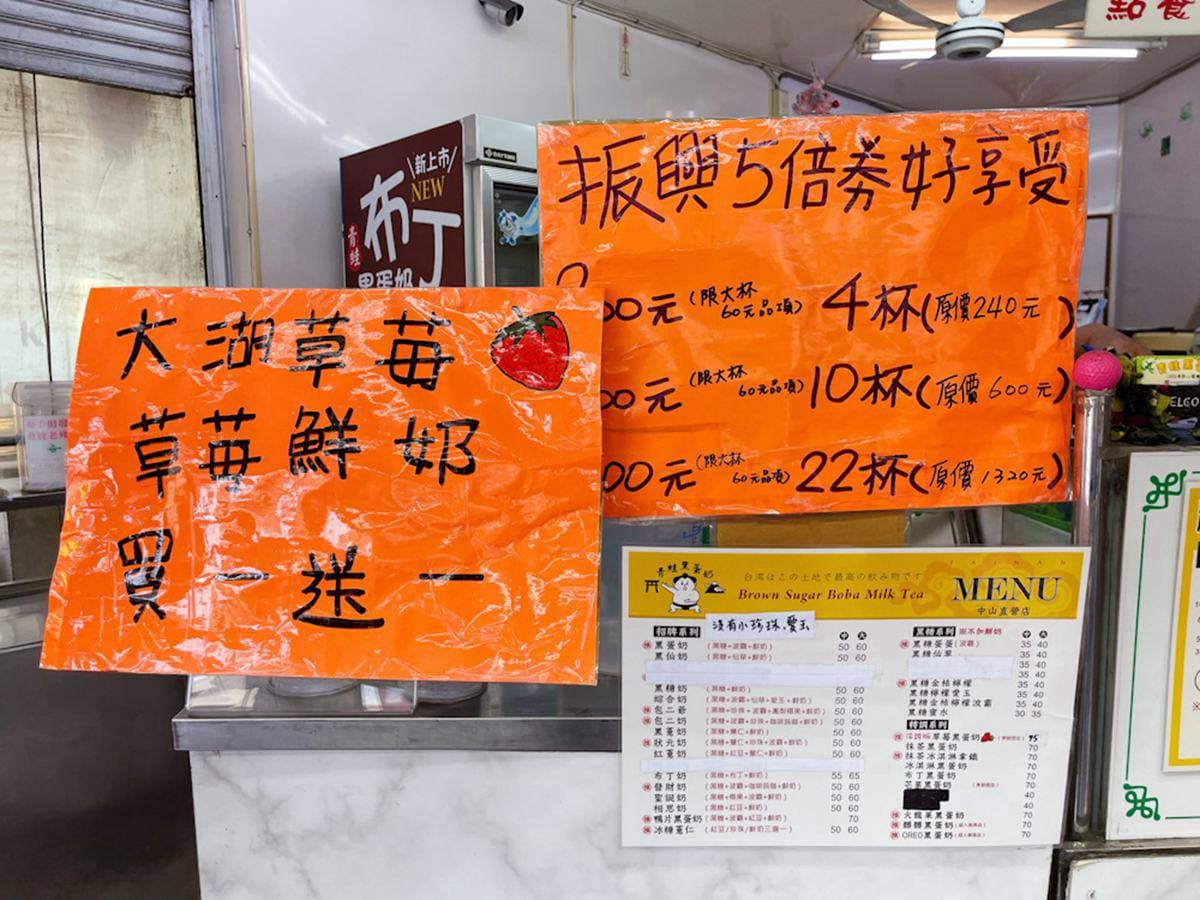 點食
\新上市/
NEW
布丁
青蛙
黑蛋奶
振興5倍券好享受
00元(限大杯60元品項) 4杯(原價240元)
00元(限大杯60元品項) 10杯(原價600元)
00元(限大杯60元品項) 22杯(原價1320元)
大湖草莓
草莓鮮奶
買一送一
青蛙黑蛋奶
台湾はこの土地で最高の飲み物です
Brown Sugar Boba Milk Tea
MENU
中山直營店
沒有小珍珠、愛玉
招牌系列 中 大
黑蛋奶(黑糖+波霸+鮮奶) 50 60
黑仙奶(黑糖+仙草+鮮奶) 50 60
黑糖奶(黑糖+鮮奶) 50 60
綜合奶(黑糖+波霸+仙草+愛玉+鮮奶) 50 60
包二爺 50 60
包二奶 50 60
黑薏奶(黑糖+薏仁+鮮奶) 50 60
狀元奶(黑糖+薏仁+珍珠+波霸+鮮奶) 50 60
紅薏奶 50 60
布丁奶(黑糖+布丁+鮮奶) 55 65
發財奶 50 60
聖誕奶 50 60
相思奶(黑糖+紅豆+鮮奶) 50 60
鴨片黑蛋奶(黑糖+波霸+紅豆+鮮奶) 70
冰糖薏仁(紅豆/珍珠/鮮奶三選一) 50 60
黑糖系列 ※不加鮮奶 中 大
黑糖蛋蛋(波霸) 35 40
黑糖仙草 35 40
35 40
黑糖金桔檸檬 35 40
黑糖檸檬愛玉 35 40
黑糖金桔檸檬波霸 35 40
黑糖蜜水 30 35
特調系列
草莓黑蛋奶 75
抹茶黑蛋奶 70
抹茶冰淇淋拿鐵 70
冰淇淋黑蛋奶 70
布丁黑蛋奶 70
芒果黑蛋奶 70
40
40
火龍果黑蛋奶 70
麟麟黑蛋奶 70
OREO黑蛋奶 70
ELCO